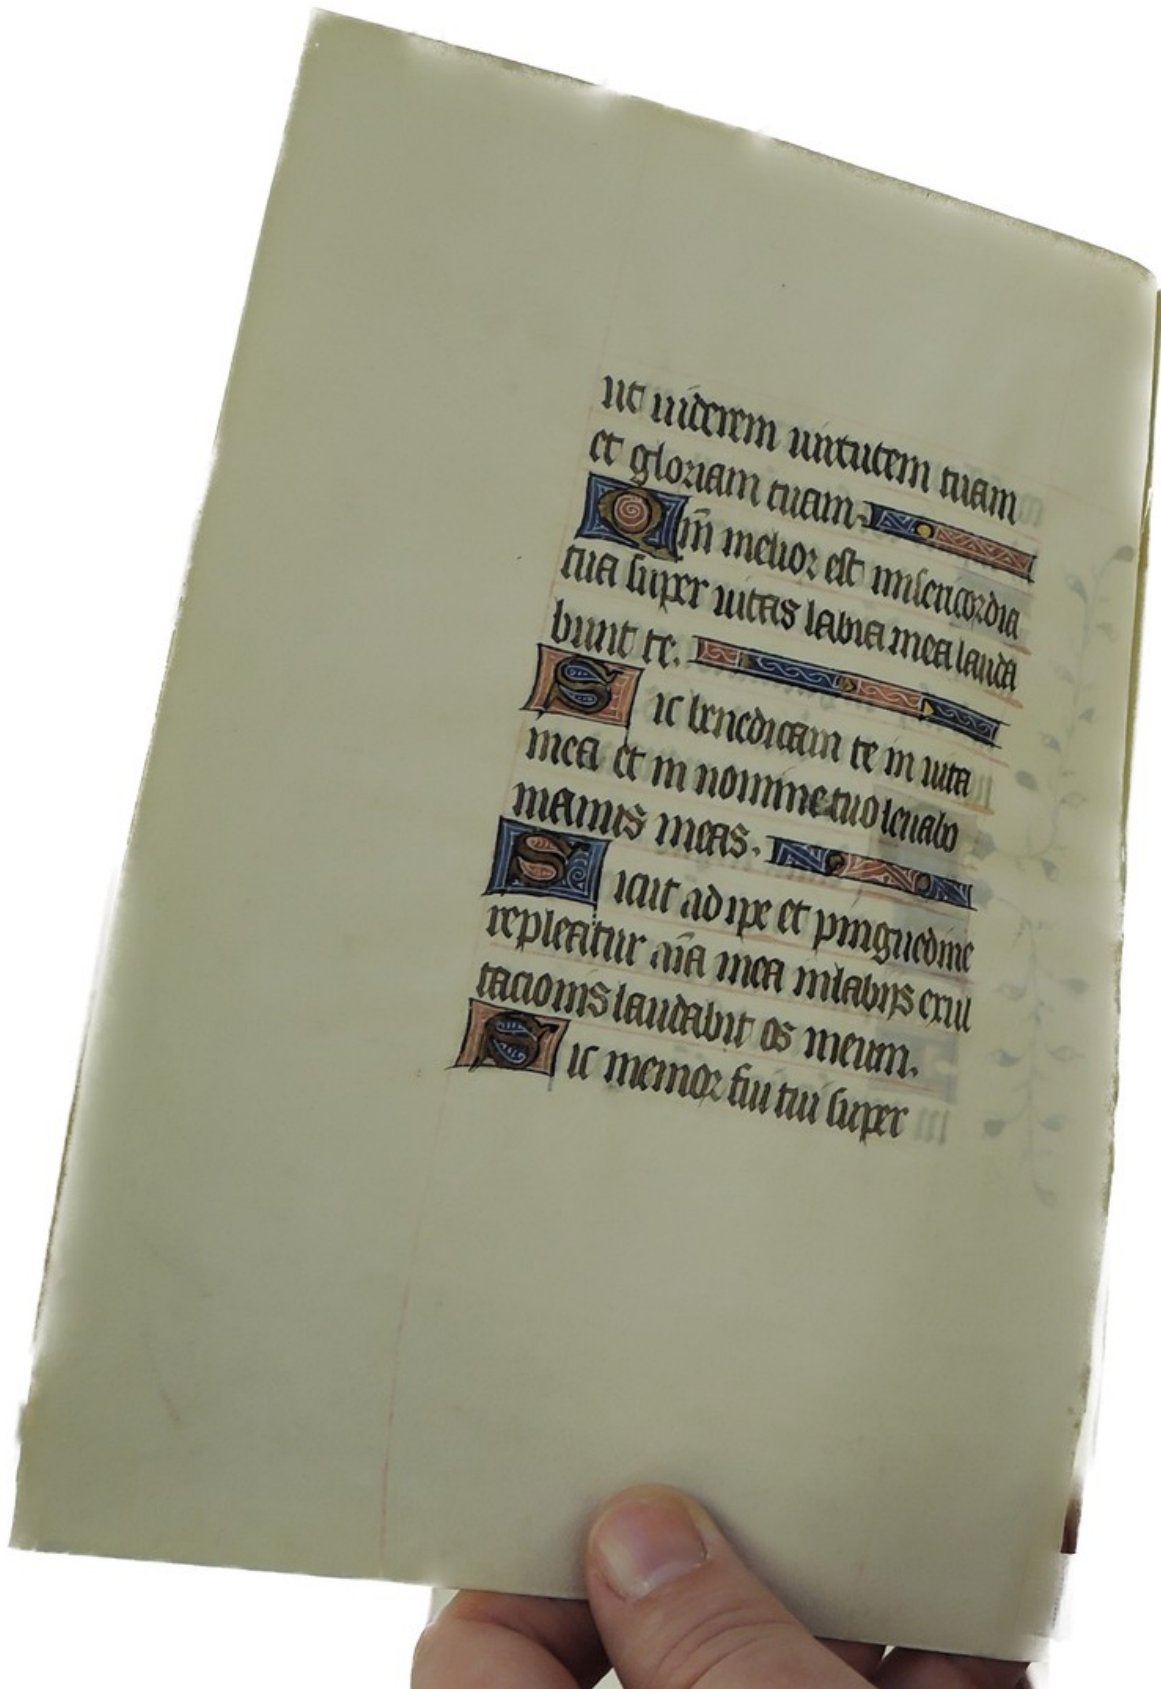 ut uiderem uirtutem tuam
et gloriam tuam.
Qm̅ melior est misericordia
tua super uitas labia mea lauda
bunt te.
Sic benedicam te in uita
mea et in nomine tuo leuabo
manus meas.
Sicut adipe et pinguedine
repleatur aīa mea et labijs exul
tacionis laudabit os meum.
Sic memor fui tui super